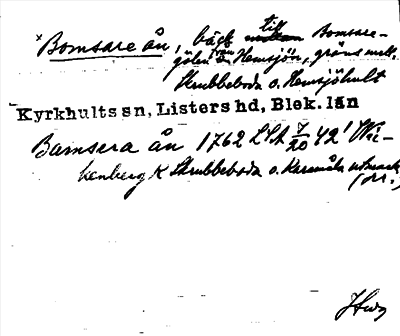 Bomsare ån, bäck till Bomsare-
gölen från Hemsjön, gräns mell.
Skrubbeboda o. Hemsjöhult
Kyrkhults sn, Listers hd, Blek. län
Bamsera ån 1762 LSA 7/20 42¹ Wi-
kenberg K Skrubbeboda o. Karamåla utmark